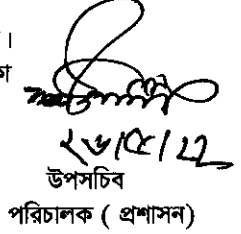 ।
কা
২৬/৫/২২
উপসচিব
পরিচালক ( প্রশাসন)